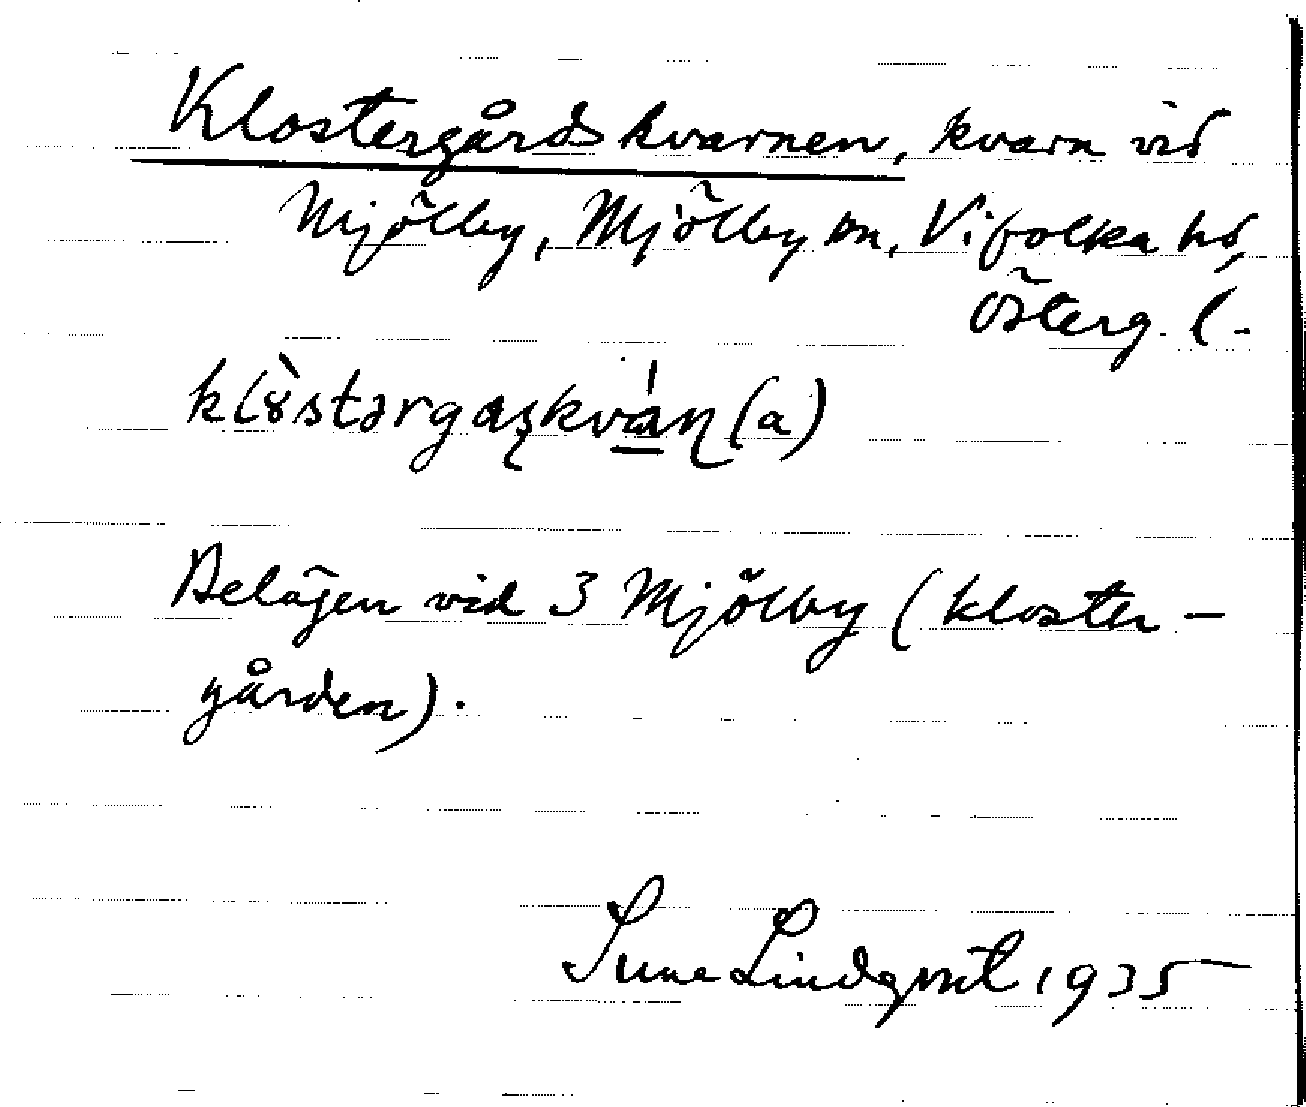 Klostergårdskvarnen, kvarn vid
Mjölby, Mjölby sn, Vifolka hd,
Österg. l.
klȣ̀stərgaʂkván(a)
Belägen vid 3 Mjölby (kloster-
gården).
Sune Lindqvist 1935